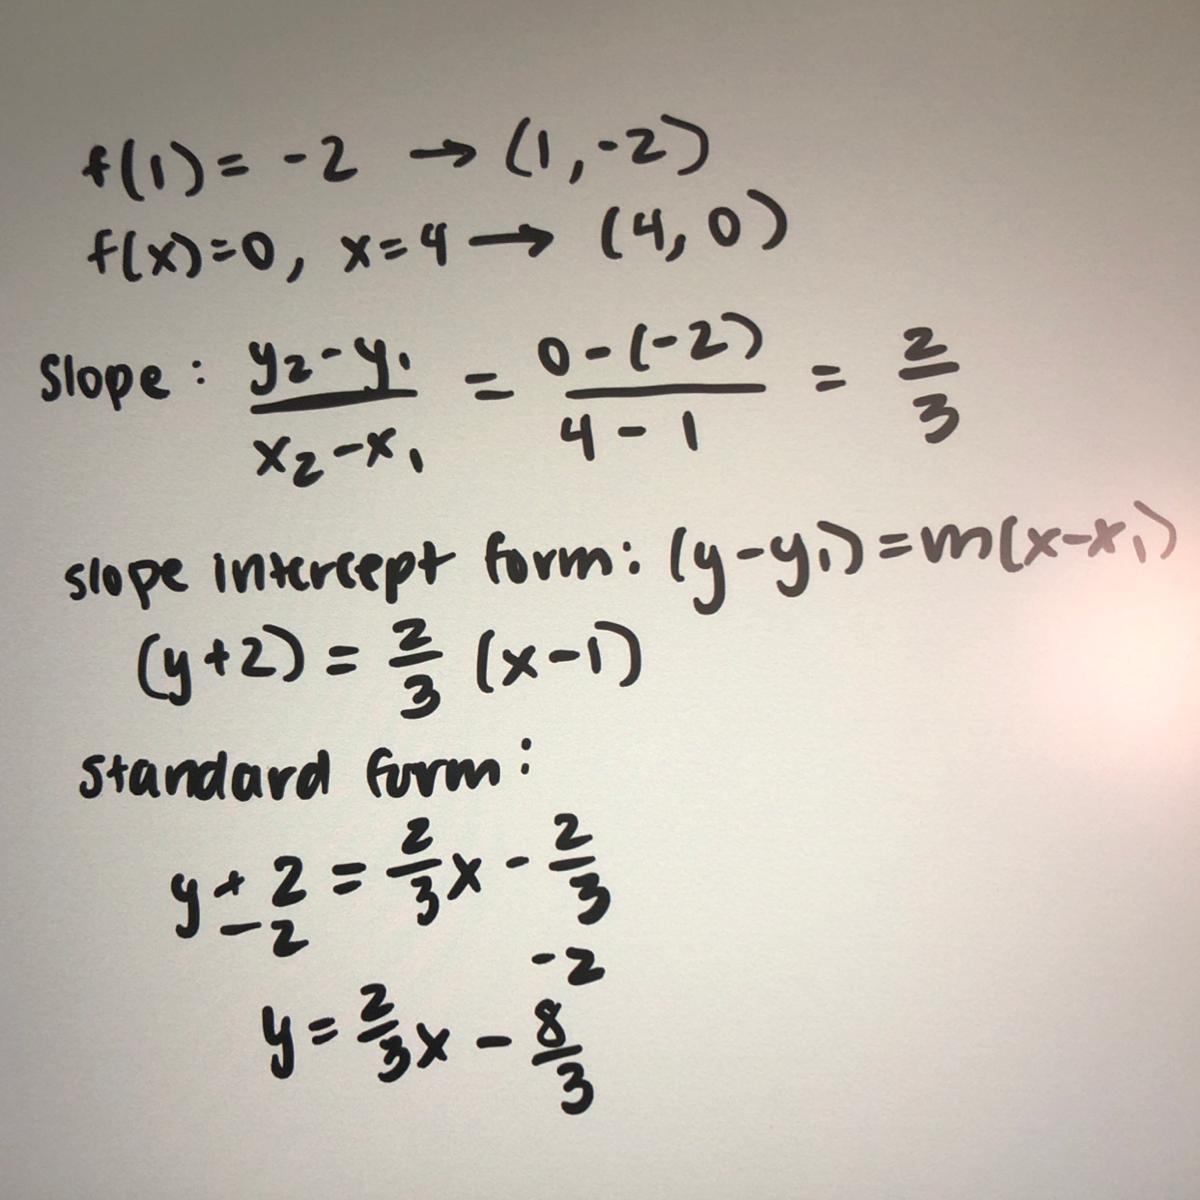 f(1) = -2 → (1, -2)
f(x)=0, x=4 → (4, 0)
Slope: y₂-y₁ / x₂-x₁ = 0-(-2) / 4-1 = 2/3
slope intercept form: (y-y₁)=m(x-x₁)
(y+2) = 2/3 (x-1)
standard form:
y+2 = 2/3x - 2/3
-2 -2
y = 2/3x - 8/3